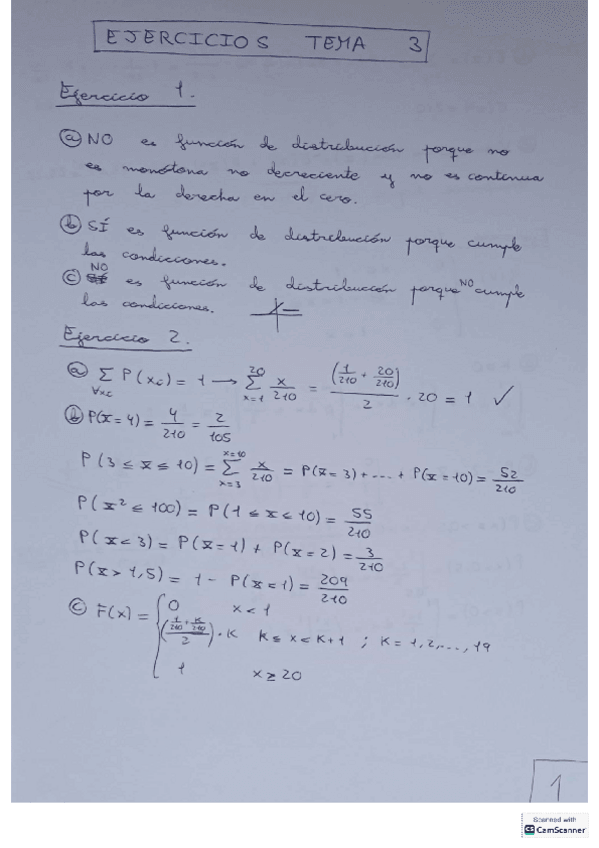 EJERCICIOS TEMA 3
Ejercicio 1.
ⓐ NO es función de distribución porque no
es monótona no decreciente y no es continua
por la derecha en el cero.
ⓑ SÍ es función de distribución porque cumple
las condiciones.
ⓒ NO es función de distribución porque NO cumple
las condiciones.
Ejercicio 2.
ⓐ ∑ P(xᵢ) = 1 → ∑ x/210 = (1/210 + 20/210)/2 · 20 = 1 ✓
∀xᵢ x=1 20
ⓑ P(x=4) = 4/210 = 2/105
P(3 ≤ x ≤ 10) = ∑ x=3 x=10 x/210 = P(x=3) + .... + P(x=10) = 52/210
P(x² ≤ 100) = P(1 ≤ x < 10) = 55/210
P(x<3) = P(x=1) + P(x=2) = 3/210
P(x>1,5) = 1 - P(x=1) = 209/210
ⓒ F(x) = { 0 x < 1
(1/210 + K/210)/2 · K K ≤ x < K+1 ; K = 1, 2, ..., 19
1 x ≥ 20
1
Scanned with
CS CamScanner